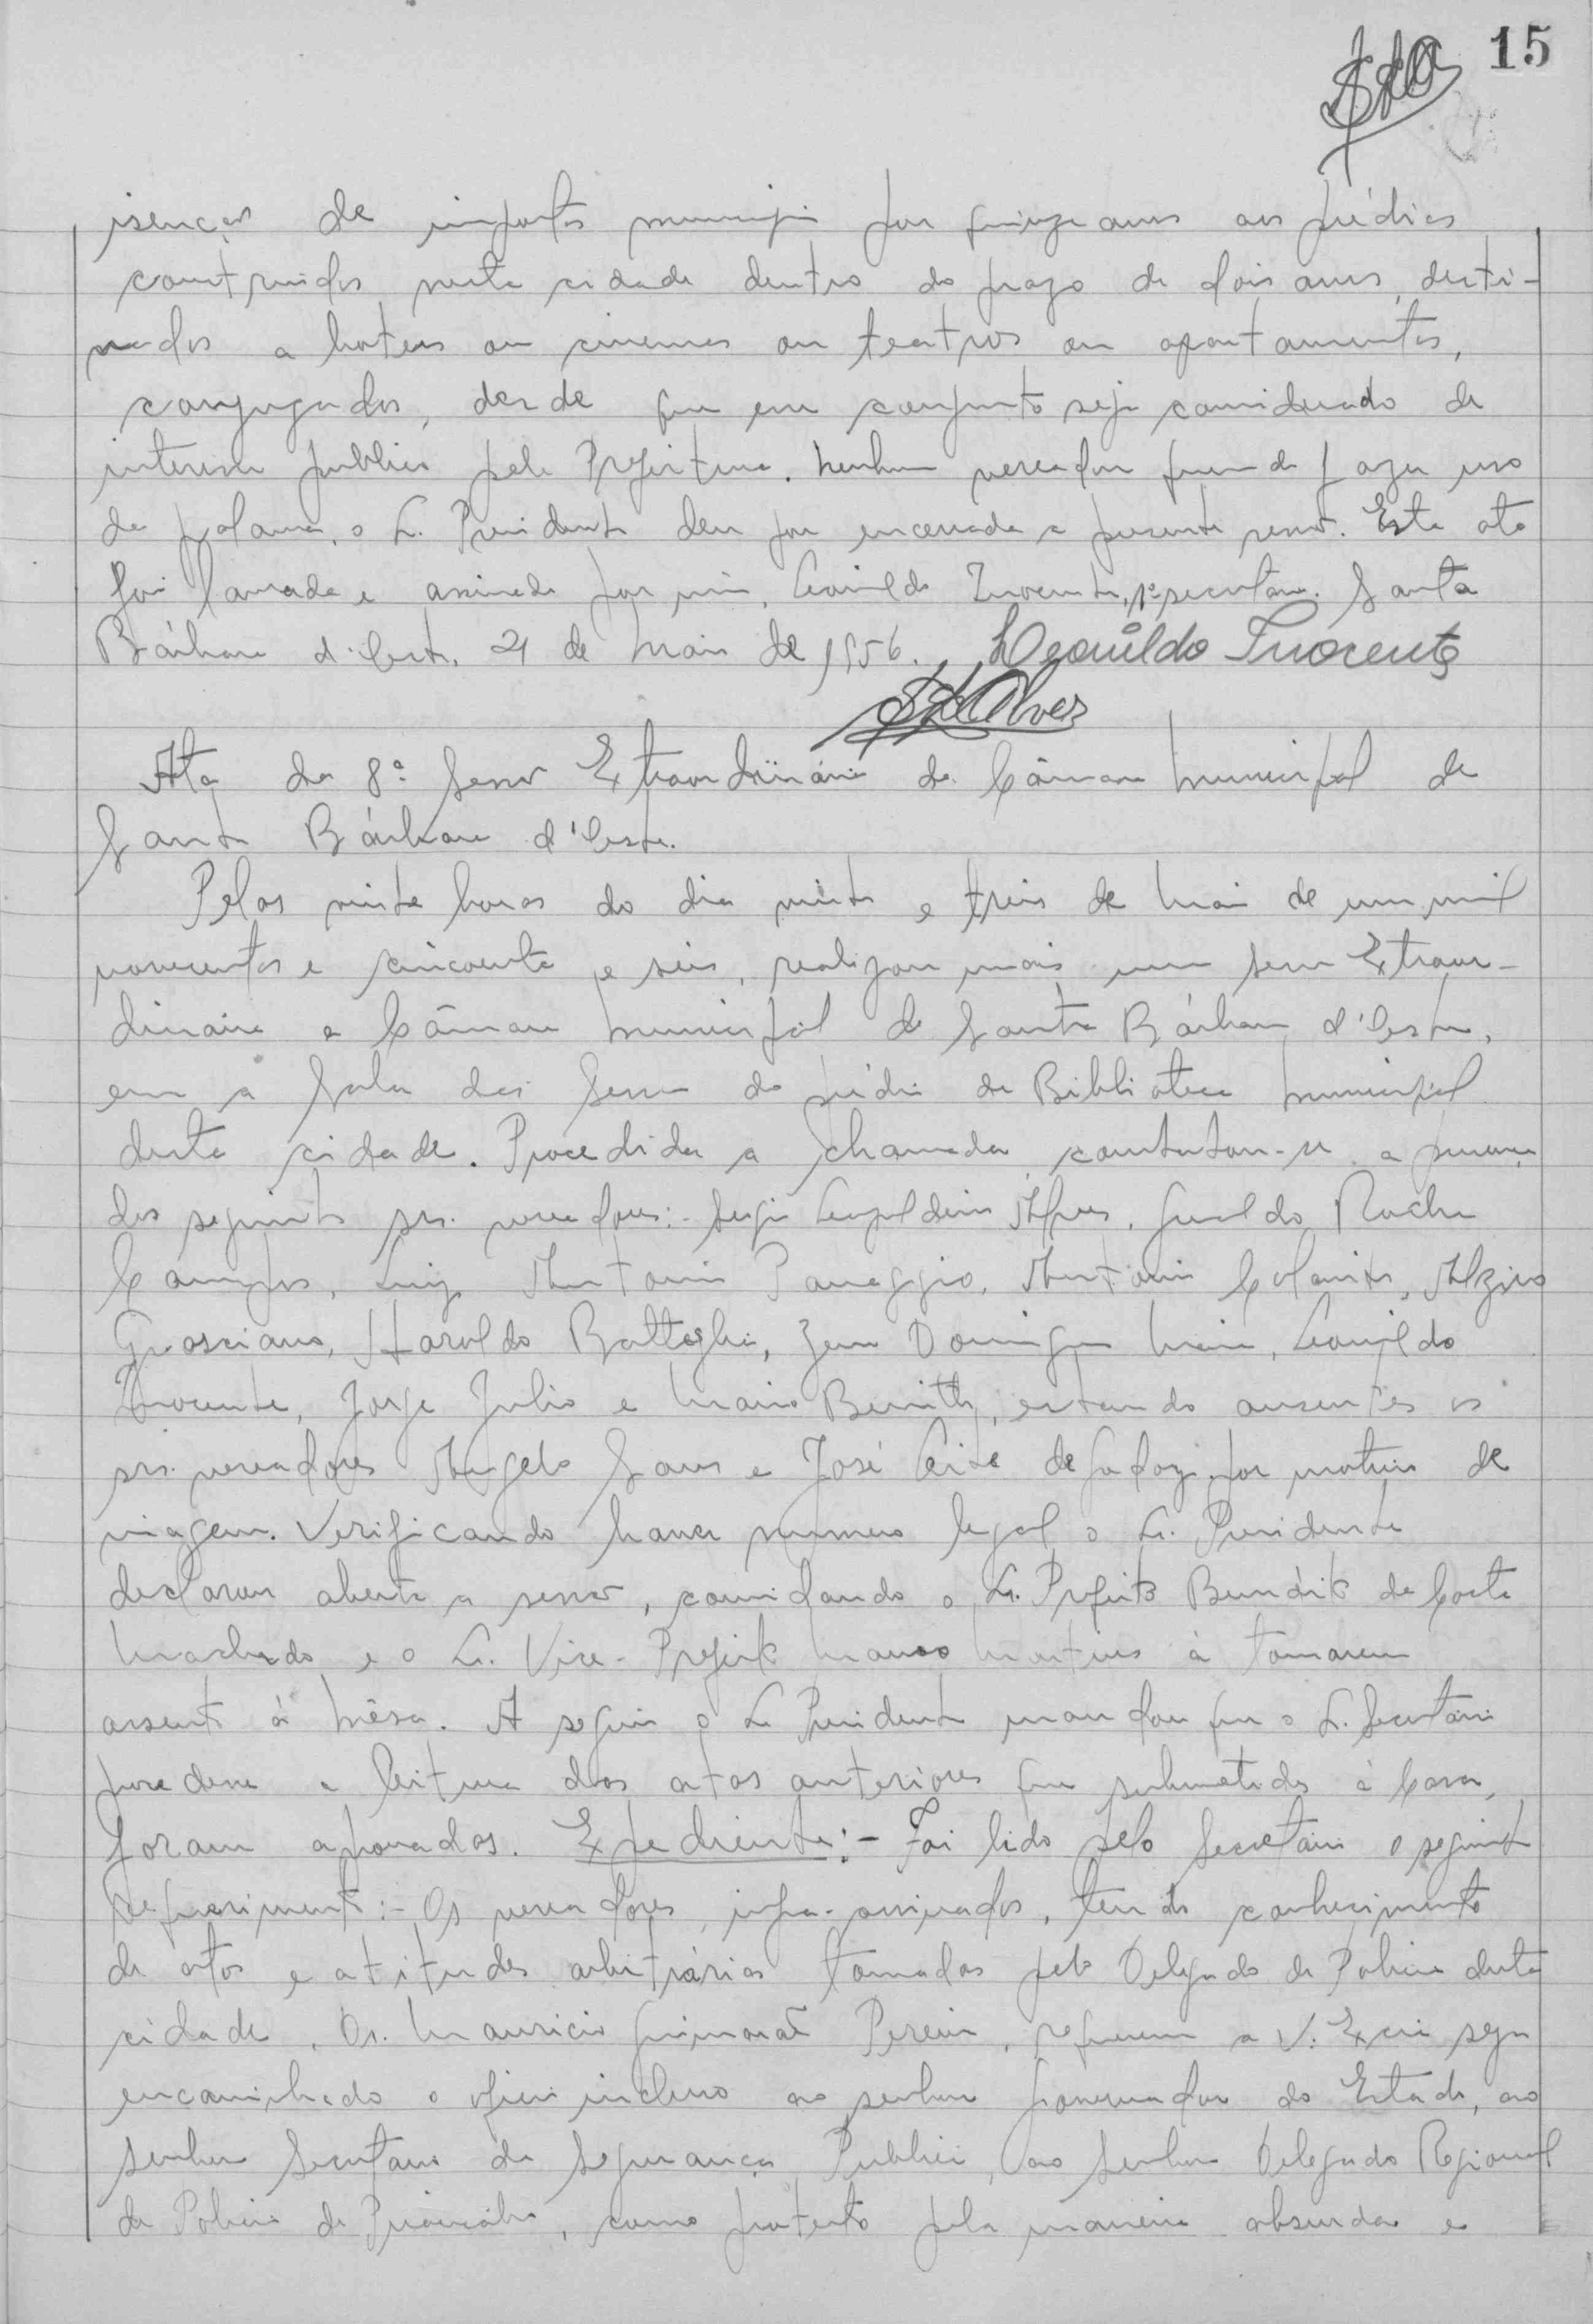 15
isenção de impostos municipais por quinze anos aos prédios
construidos nesta cidade dentro do prazo de dois anos, desti-
nados a hoteis ou cinemas ou teatros ou apartamentos,
conjugados, desde que em conjunto seja considerado de
interesse publico pela Prefeitura. Nenhum vereador querendo fazer uso
da palavra, o Sr. Presidente deu por encerrada a presente sessão. Esta ata
foi lavrada e assinada por mim, Leonildo Inocente, 1º secretario. Santa
Bárbara d'Oeste, 21 de Maio de 1956. Leonildo Inocente
SLAlves
Ata da 8ª Sessão Extraordinária da Câmara Municipal de
Santa Bárbara d'Oeste.
Pelas vinte horas do dia vinte e treis de Maio de um mil
novecentos e cincoenta e seis, realizou mais uma sessão Extraor-
dinaria a Câmara Municipal de Santa Bárbara d'Oeste,
em a Sala das Sessões do prédio da Biblioteca Municipal
desta cidade. Procedida a chamada constatou-se a presença
dos seguintes srs. vereadores:- Sergio Leopoldino Alves, Geraldo Rocha
Campos, Luiz Antonio Panaggio, Antonio Colanito, Alziro
Grasciano, Haroldo Battaglia, Domingos Maia, Leonildo
Inocente, Jorge Julio e Mario, estando ausentes os
srs. vereadores Angelo Sans e José Leite de Godoy, por motivo de
viagem. Verificando haver numero legal o Sr. Presidente
declarou aberta a sessão, convidando o Sr. Prefeito Benedito da Costa
Machado e o Sr. Vice-Prefeito Martins à tomarem
assento à Mêsa. A seguir o Sr. Presidente mandou que o Sr. Secretário
procedesse a leitura das atas anteriores que submetidas à Casa,
foram aprovadas. Expediente:- Foi lido pelo Secretário o seguinte
Requerimento:- Os vereadores, infra-assinados, tendo conhecimento
de atos e atitudes arbitrárias tomadas pelo Delegado de Policia desta
cidade, Dr. Mauricio Guimarães Pereira, requerem a V. Excia seja
encaminhado o oficio incluso ao senhor Governador do Estado, ao
Senhor Secretario da Segurança Publica, ao Senhor Delegado Regional
de Policia de Piracicaba, como protesto pela maneira absurda e